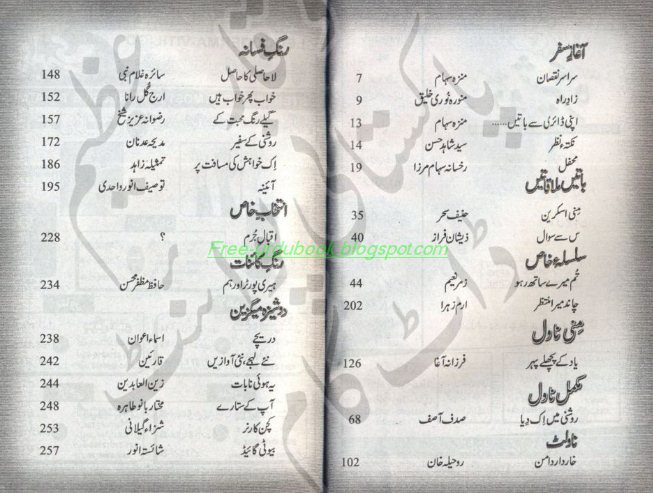 آغازِ سفر
سراسر نقصان منزہ سہام 7
زادِ راہ منورہ نوری خلیق 9
اپنی ڈائری سے باتیں...... منزہ سہام 13
نکتۂ نظر سید شاہد حسن 14
محفل رخسانہ سہام مرزا 19
باتیں ملاقاتیں
مِنی اسکرین حنیف سحر 35
س سے سوال ذیشان فراز 40
سلسلۂ خاص
تم میرے ساتھ رہو زمر نعیم 44
چاند میرا منتظر ارم زہرا 202
مِنی ناول
یاد کے پچھلے پہر فرزانہ آغا 126
مکمل ناول
روشنی میں اِک دِیا صدف آصف 68
ناولٹ
خاردار دامن روحیلہ خان 102
رنگِ فسانہ
لاحاصلی کا حاصل سائرہ غلام نبی 148
خواب پھر خواب ہیں ارج گل رانا 152
گیلے رنگ محبت کے رضوانہ عزیز شیخ 157
روشنی کے سفیر مدیحہ عدنان 172
اِک خواہش کی مسافت پر تمثیلہ زاہد 186
آئینہ توصیف انور واحدی 195
انتخابِ خاص
اقبالِ جُرم ؟ 228
رنگِ کائنات
ہیری پورٹر اور ہم حافظ مظفر محسن 234
دوشیزہ میگزین
دریچے اسماء اعوان 238
نئے لہجے، نئی آوازیں قارئین 242
یہ ہوئی نا بات زین العابدین 244
آپ کے ستارے مختار بانو طاہرہ 248
کچن کارنر شزاء گیلانی 253
بیوٹی گائیڈ شائستہ انور 257
Free-urdubook.blogspot.com
پاکستانی
ڈاٹ کام
عظیم